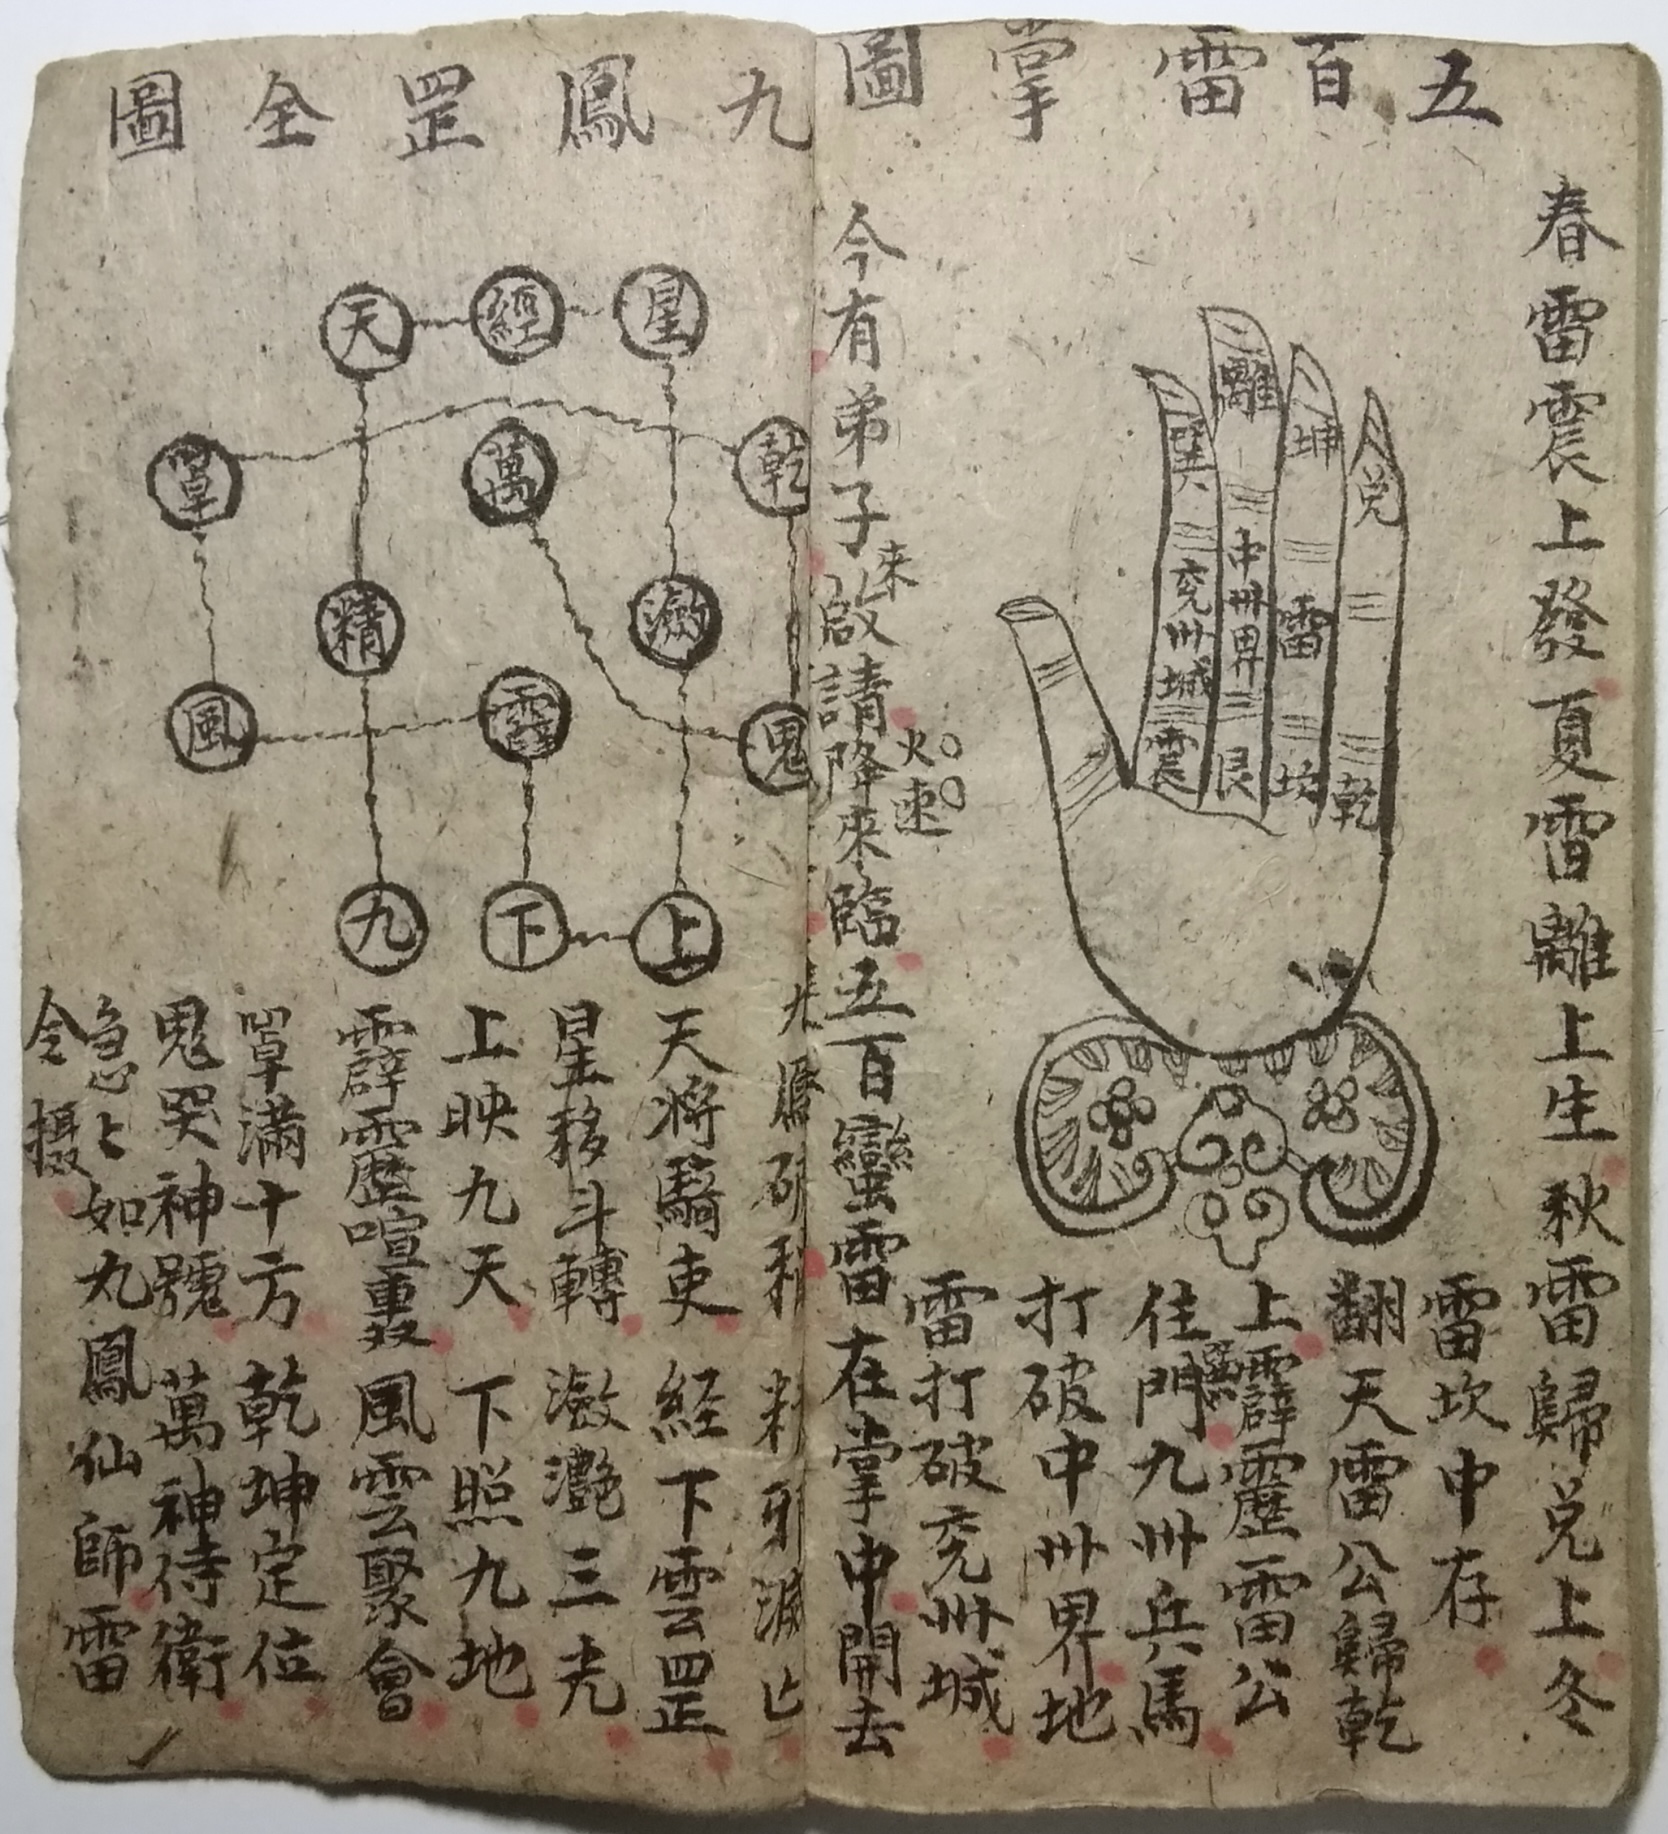 五百雷掌圖
春雷震上發夏雷離上生秋雷歸兌上冬
雷坎中存
翻天雷公歸乾
上霹靂雷公
住門九卅兵馬
打破中卅界地
雷打破兖卅城
巽
離
坤
兌
兖卅城
中卅界
雷
震
艮
坎
乾
今有弟子啟請降來臨五百蠻雷在掌中開去
来
火速
九鳳罡全圖
天
經
星
罩
萬
乾
精
激
風
霹
鬼
九
下
上
精邪滅亡
天將騎吏經下雲罡
星移斗轉激灧三光
上映九天下照九地
霹靂喧轟風雲聚會
罩滿十方乾坤定位
鬼哭神號萬神侍衛
急々如九鳳仙師雷
令攝